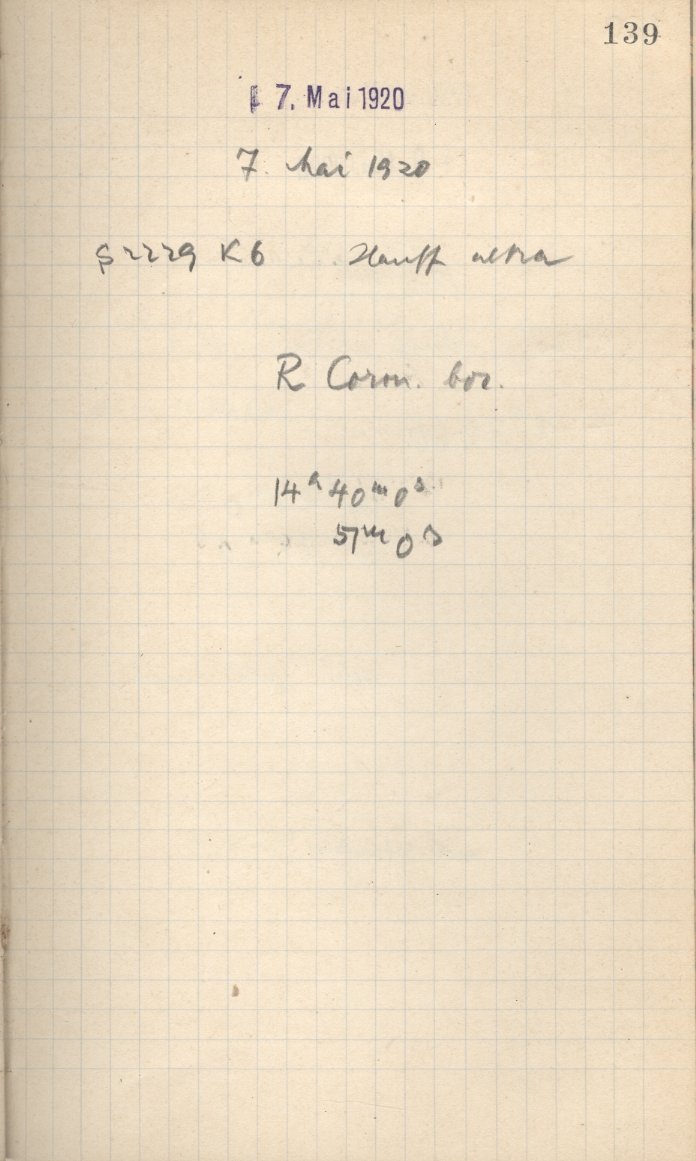 139
7. Mai 1920
7. Mai 1920
S 2229 K6 Hauff ultra
R Coron. bor.
14h 40m 0s
51m 0s